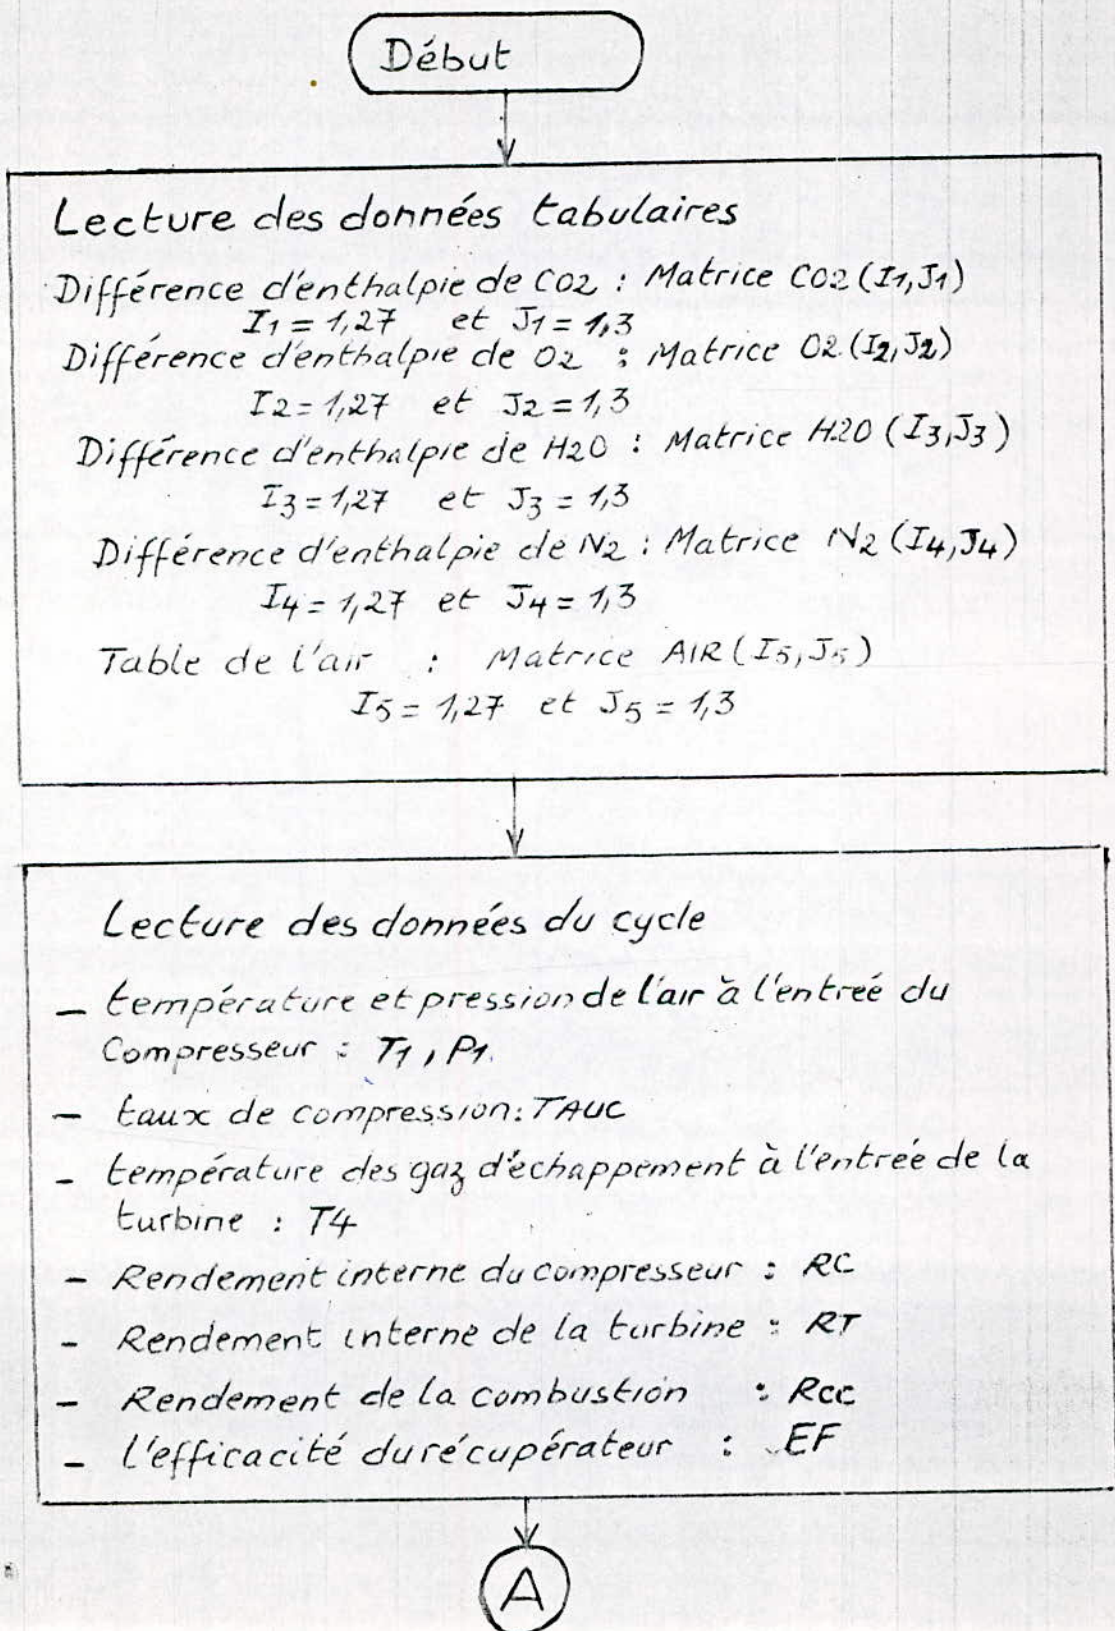 Début
Lecture des données tabulaires
Différence d'enthalpie de CO2 : Matrice CO2 (I1,J1)
I1 = 1,27 et J1 = 1,3
Différence d'enthalpie de O2 : Matrice O2 (I2,J2)
I2 = 1,27 et J2 = 1,3
Différence d'enthalpie de H2O : Matrice H2O (I3,J3)
I3 = 1,27 et J3 = 1,3
Différence d'enthalpie de N2 : Matrice N2 (I4,J4)
I4 = 1,27 et J4 = 1,3
Table de l'air : Matrice AIR (I5,J5)
I5 = 1,27 et J5 = 1,3
Lecture des données du cycle
- température et pression de l'air à l'entrée du
Compresseur : T1 , P1.
- taux de compression : TAUC
- température des gaz d'échappement à l'entrée de la
turbine : T4
- Rendement interne du compresseur : RC
- Rendement interne de la turbine : RT
- Rendement de la combustion : Rcc
- l'efficacité du récupérateur : EF
A